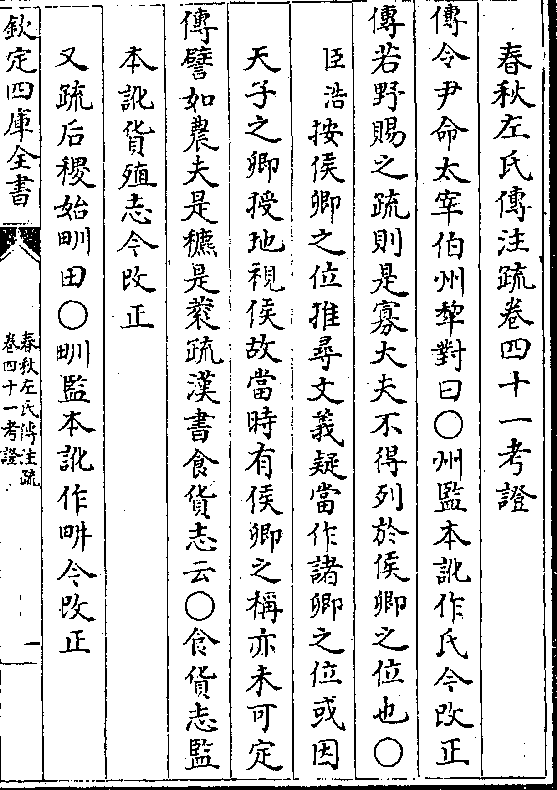 春秋左氏傳注疏卷四十一考證
傳令尹命太宰伯州犂對曰○州監本訛作氏今改正
傳若野賜之疏則是寡大夫不得列於侯卿之位也○
臣浩按侯卿之位推尋文義疑當作諸卿之位或因
天子之卿授地視侯故當時有侯卿之稱亦未可定
傳譬如農夫是穮是蓘疏漢書食貨志云○食貨志監
本訛貨殖志今改正
又疏后稷始甽田○甽監本訛作畊今改正
欽定四庫全書
春秋左氏傳注疏
卷四十一考證
一